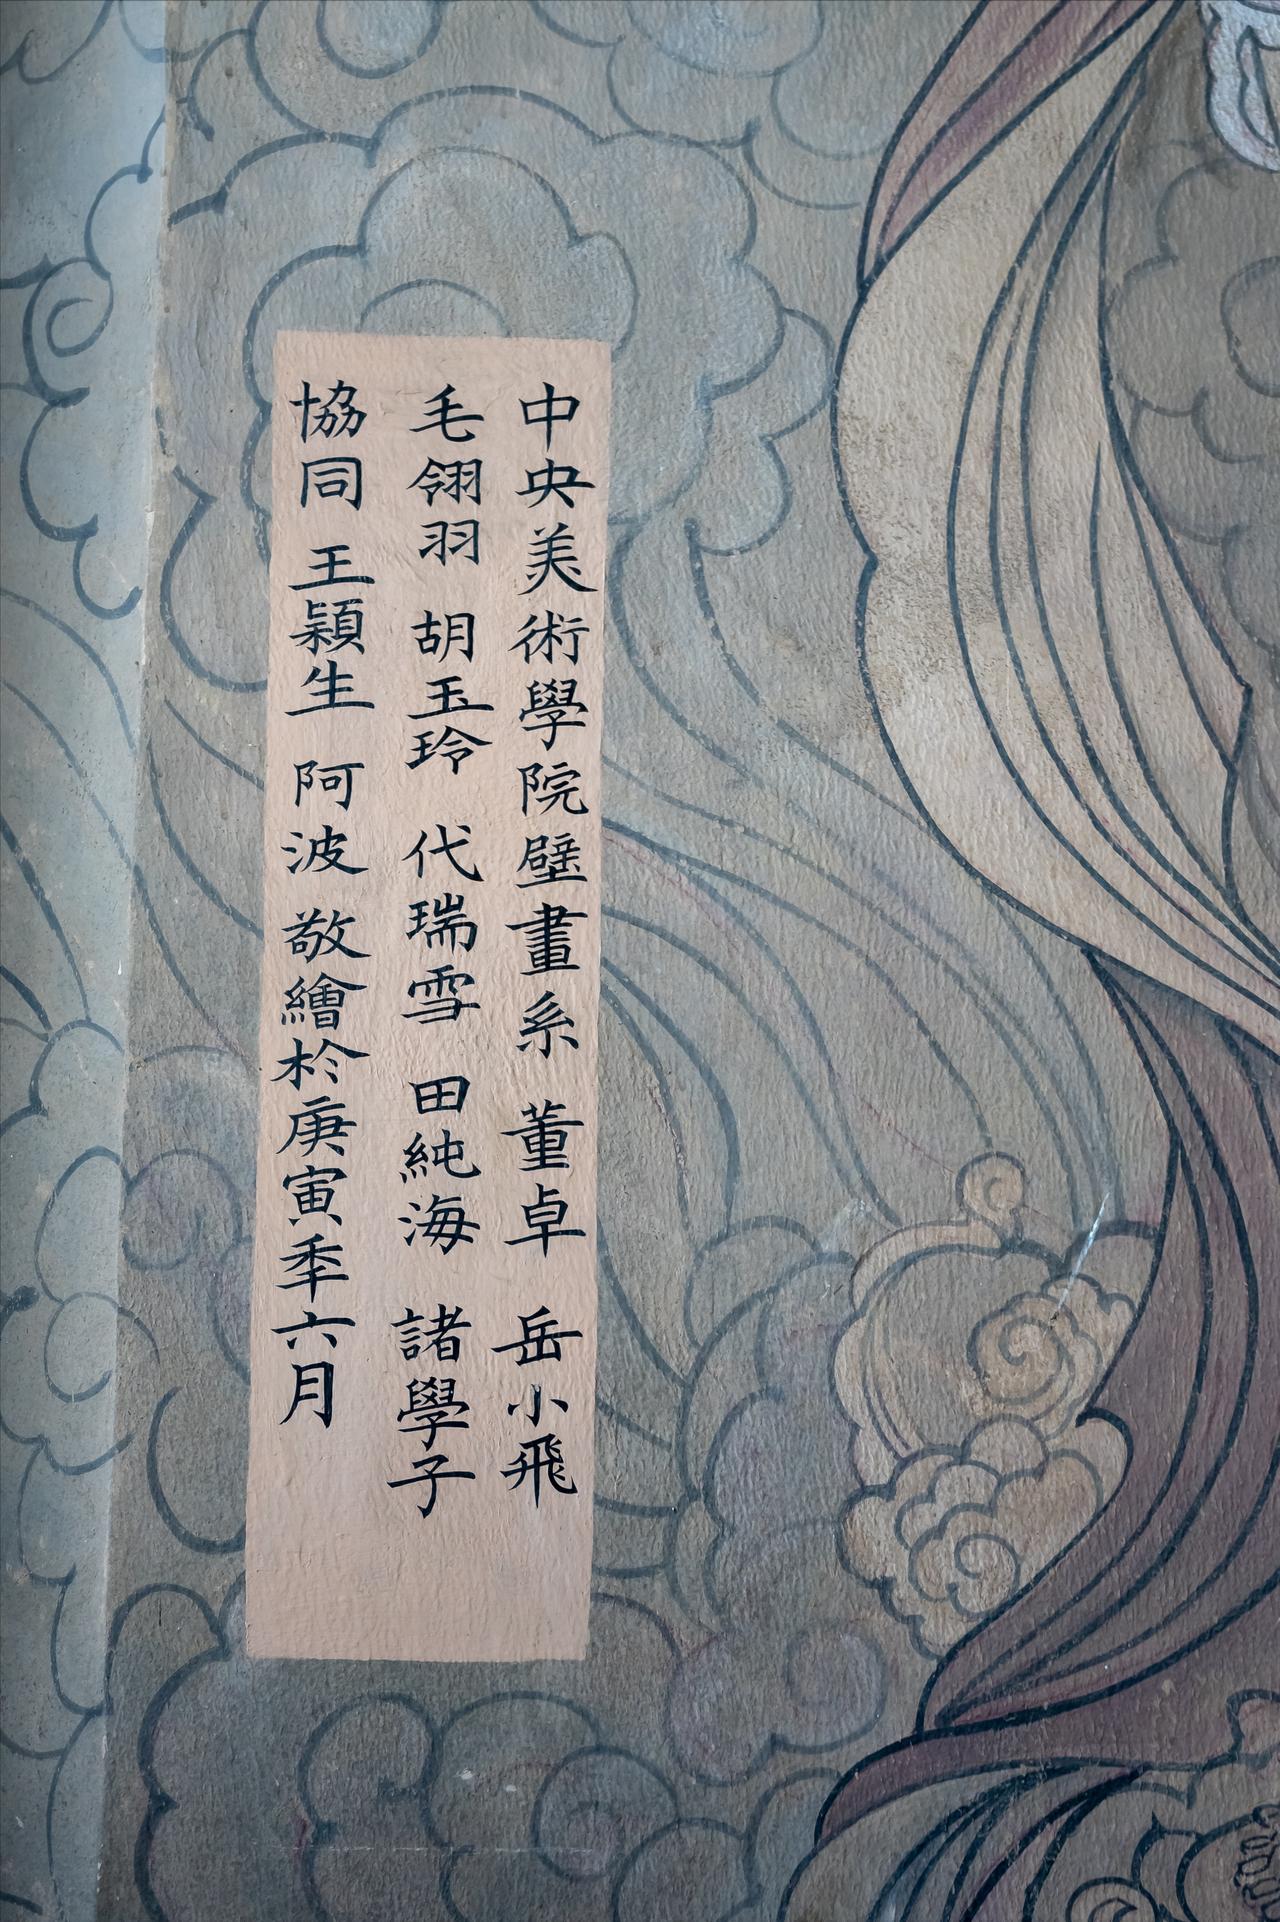 中央美術學院壁畫系 董卓 岳小飛
毛翎羽 胡玉玲 代瑞雪 田純海 諸學子
協同 王穎生 阿波 敬繪於庚寅秊六月